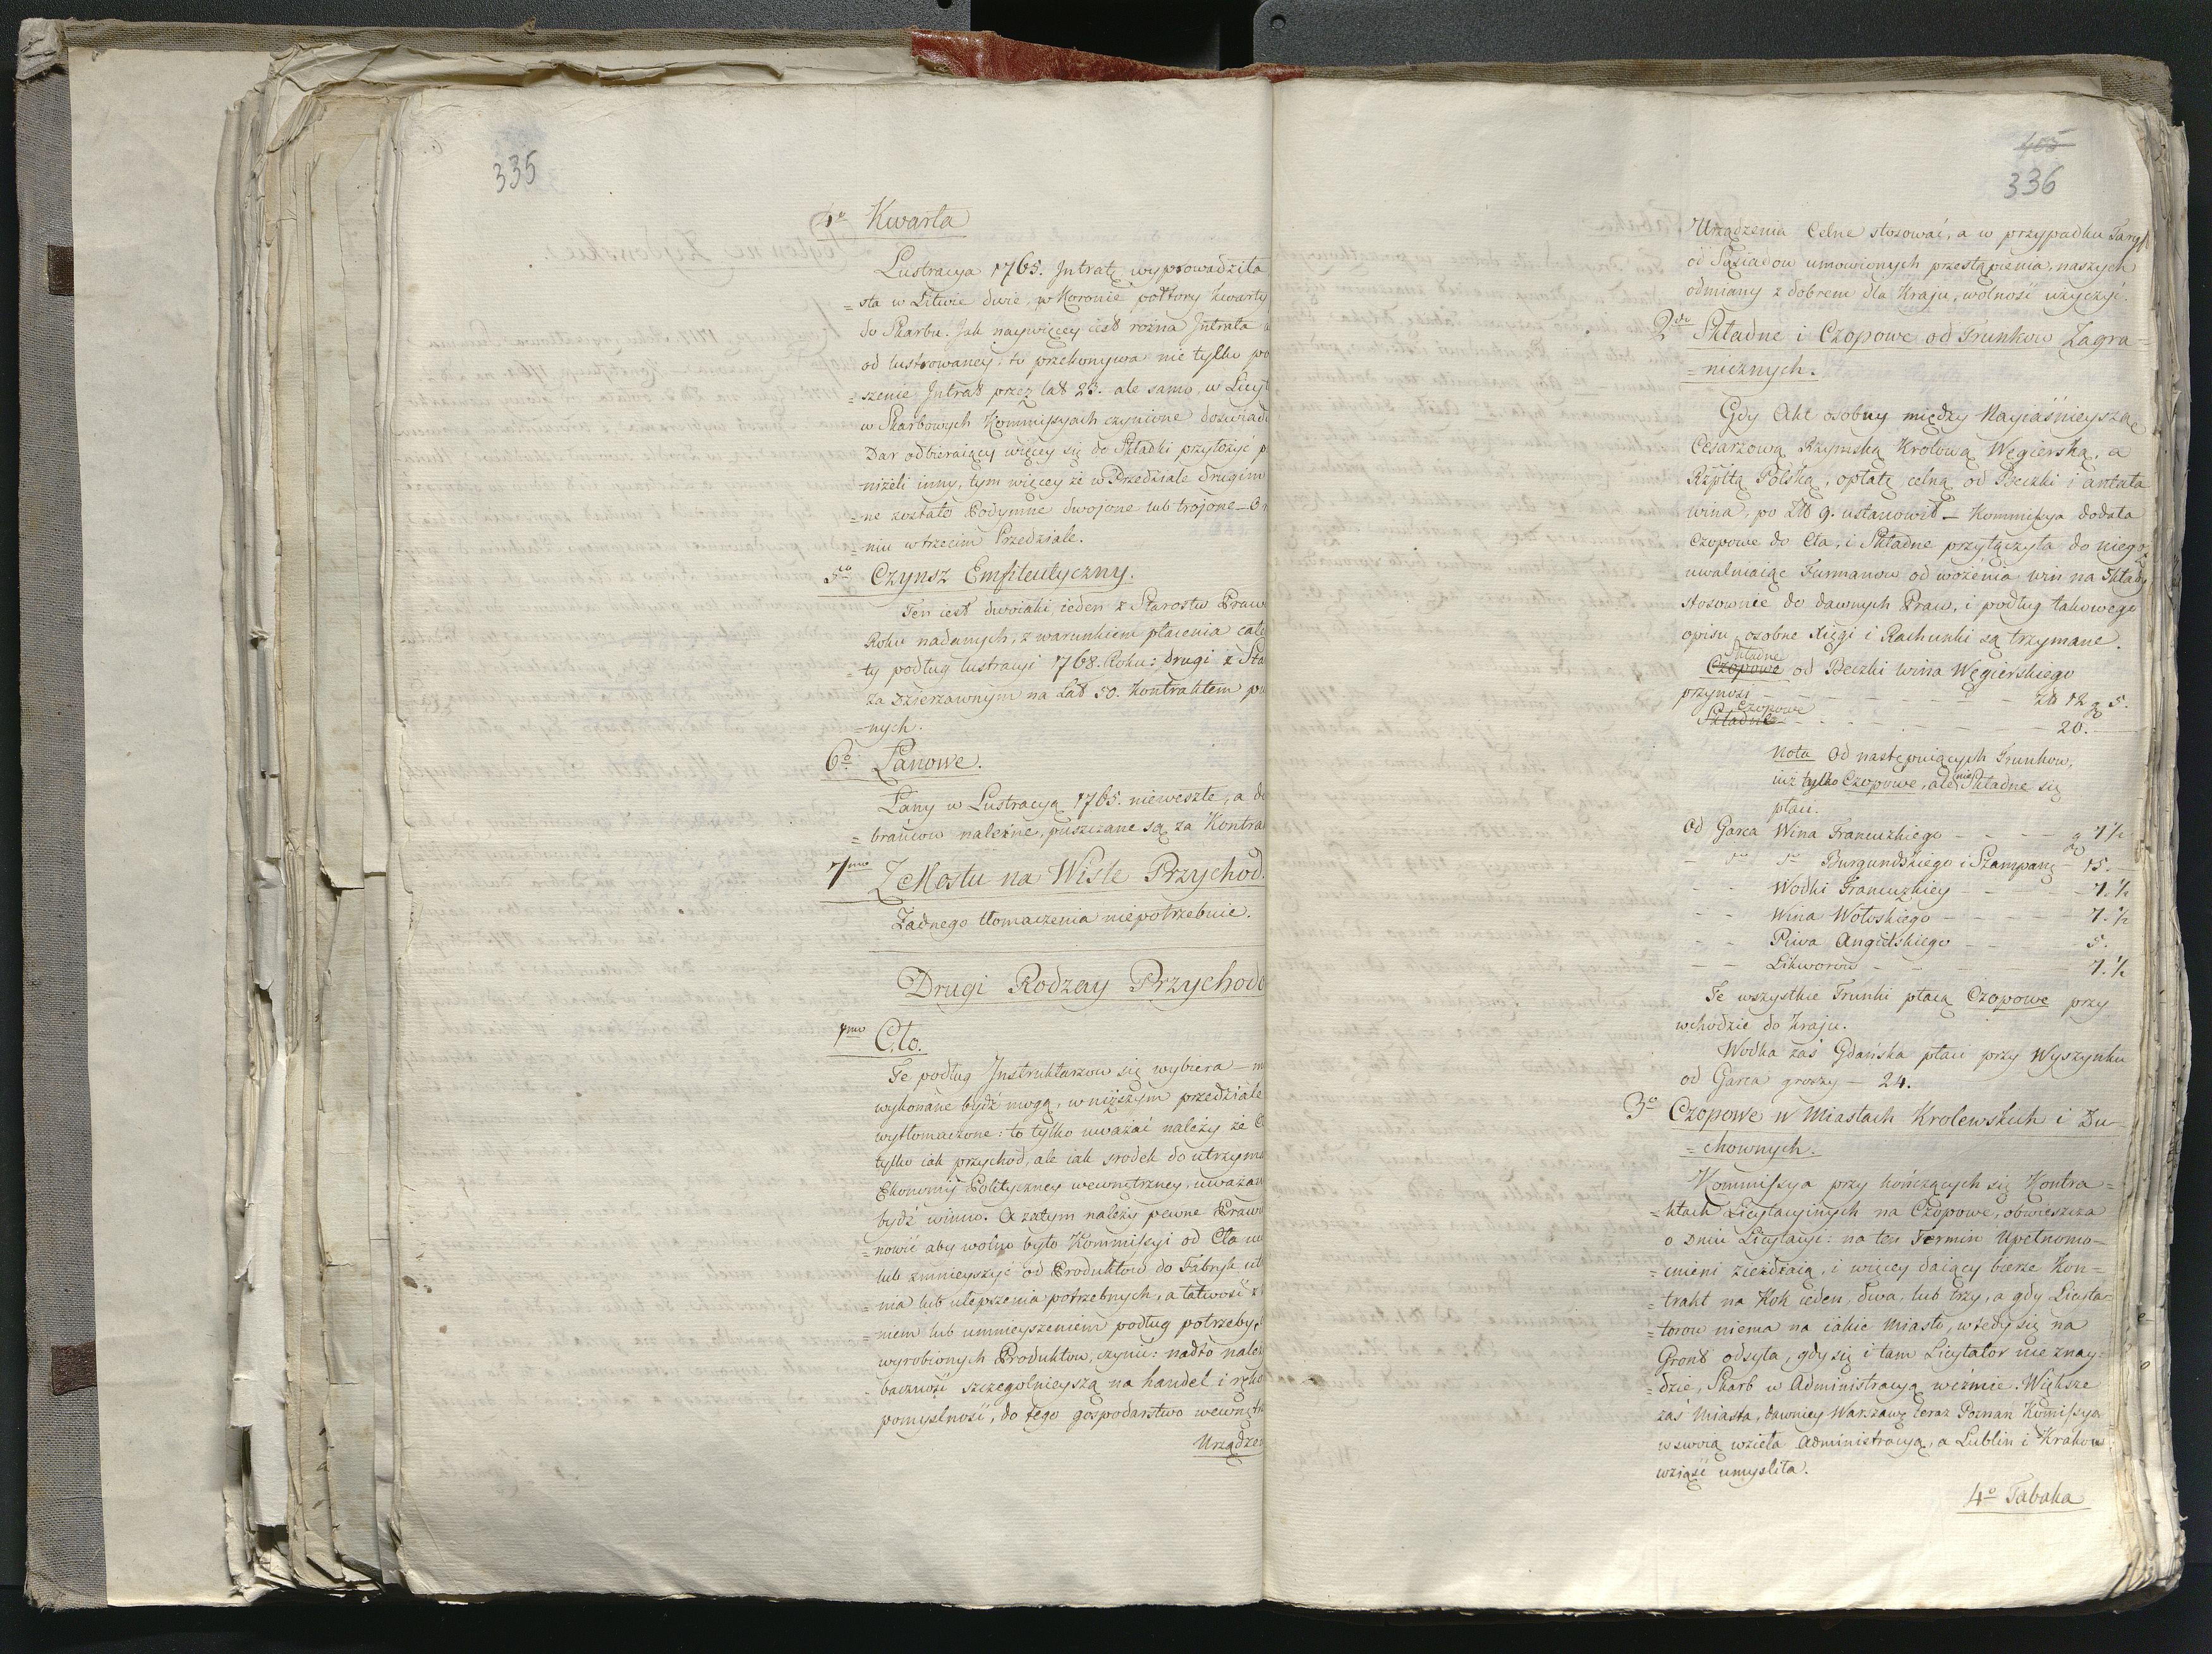 335
4º Kwarta
Lustracya 1765. Intratę wyprowadziła
=sta w Litwie dwie, w Koronie połtory kwarty
do Skarbu. Jak naywięcey iest rożna Intrata
od lustrowaney: to przekonywa nie tylko po
=szenie Intrat przez lat 23. ale samo, w Licyt
w Skarbowych Kommissyach czynione doświad
Dar odbieraiący więcey się do Składki przyłożyć p
niżeli inny, tym więcey że w Przedziale drugim
=ne zostało Podymne dwojone lub trojone
=niu w trzecim Przedziale.
5º Czynsz Emfiteutyczny.
Ten iest dwoiaki, ieden z Starostw Praw
Roku nadanych, z warunkiem płacenia całe
=ty podług lustracyi 1768. Roku: drugi z Sta
za Dzierzawnym na Lat 50. Kontraktem pu
=nych.
6º Łanowe.
Łany w Lustracyą 1765. nieweszłe, a do
=brańcow należne, puszczane są za Kontra
7mo Z Mostu na Wiśle Przychod.
Żadnego tłomaczenia niepotrzebuie.
Drugi Rodzay Przychodo
1mo Cło.
Te podług Instruktarzow się wybiera – m
wykonane bydź mogą, w niższym przedziale
wytłomaczone: to tylko uważać należy że C
tylko iak przychod, ale iak srodek do utrzyma
Ekonomij Polityczney wewnętrzney, uważan
bydź winno. A zatym należy pewne Praw
=nowić aby wolno było Kommissyi od Cła uw
lub zmnieyszyć od Produktow do Fabryk ut
=nia lub ulepszenia potrzebnych, a łatwość z
=niem lub umnieyszeniem podług potrzeby,
wyrobionych Produktow, czynić: nadto należ
bacznośź szczegolnieyszą na handel i ręko
pomyslność, do tego gospodarstwo wewnętr
Urządzen
405
336
Urządzenia Celne stosować, a w przypadku Taryf
od Sąsiadow umowionych przestąpienia, naszych
odmiany z dobrem dla Kraju, wolność użyczyć.
2do Składne i Czopowe od Trunkow Zagra=
=nicznych.
Gdy Akt osobny między Nayiaśnieyszą
Cesarzową Rzymską Krolową Węgierską, a
Rzpltą Polską, opłatę celną od Beczki i antała
wina, po Zło 9. ustanowił – Kommissya dodała
Czopowe do Cła, i Składne przyłączyła do niego,
uwalniaiąc Furmanow od wożenia win na Składy
stosownie do dawnych Praw, i podług takowego
opisu, osobne xięgi i Rachunki są trzymane.
Składne
Czopowe od Beczki wina Węgierskiego
przynosi – – – – – Zło 12 g 5.
Czopowe
Składne – – – – – 20.
Nota Od następuiących Trunkow,
iuż tylko Czopowe, ale nie Składne się
płaci.
Od Garca Wina Francuzkiego – – – g 7½
– do do Burgundzkiego i Szampana – 15.
– – Wodki Francuzkiey – – – 7.½
– – Wina Wołoskiego – – – 7.½
– – Piwa Angielskiego – – – 5.
– – Likworow – – – 7.½
Te wszystkie Trunki płacą Czopowe przy
wchodzie do kraju.
Wodka zaś Gdańska płaci przy Wyszynku
od Garca groszy – 24.
3º Czopowe w Miastach Krolewskich i Du=
=chownych.
Kommissya przy kończących się Kontra=
=ktach Licytacyinych na Czopowe, obwieszcza
o Dniu Licytacyi: na ten Termin Upełnomo=
=cnieni zieżdżaią, i więcey daiący bierze Kon=
=trakt na Rok ieden, dwa, lub trzy, a gdy Licyta=
=torow niema na iakie Miasto, wtedy się na
Gront odsyła, gdy się i tam Licytator nie znay=
=dzie, Skarb w Administracyą wezmie. Większe
zaś Miasta, dawniey Warszawę teraz Poznań Komissya
w swoią wzieła Administracyą, a Lublin i Krakow
wziąść umysliła.
4º Tabaka